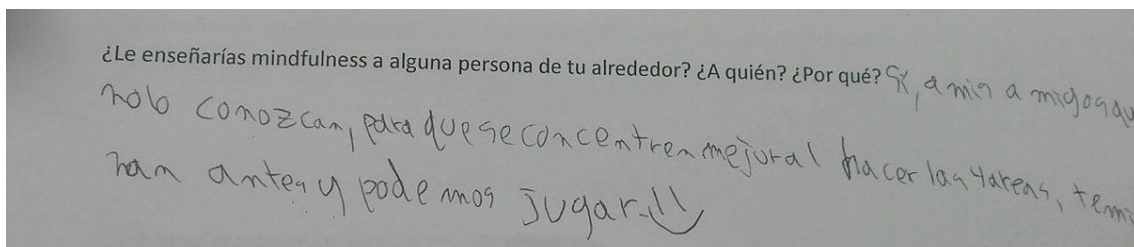 ¿Le enseñarías mindfulness a alguna persona de tu alrededor? ¿A quién? ¿Por qué? Sí, a mis amigos qu
no lo conozcan, para que se concentren mejor al hacer las tareas, termi
nan antes y podemos jugar.